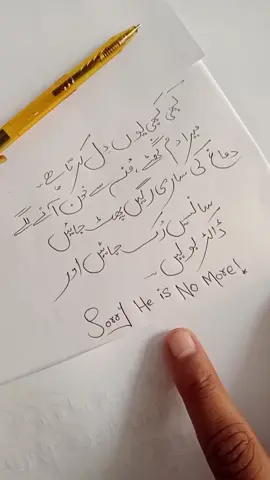 کبھی کبھی یوں دل کرتا ہے۔
میرا دم گھٹے، فنم سے خون آنے لگے
دماغ کی ساری رگیں پھٹ جائیں
سانسیں رُک جائیں اور
ڈاکٹر بولیں۔
Sorry He is No More!